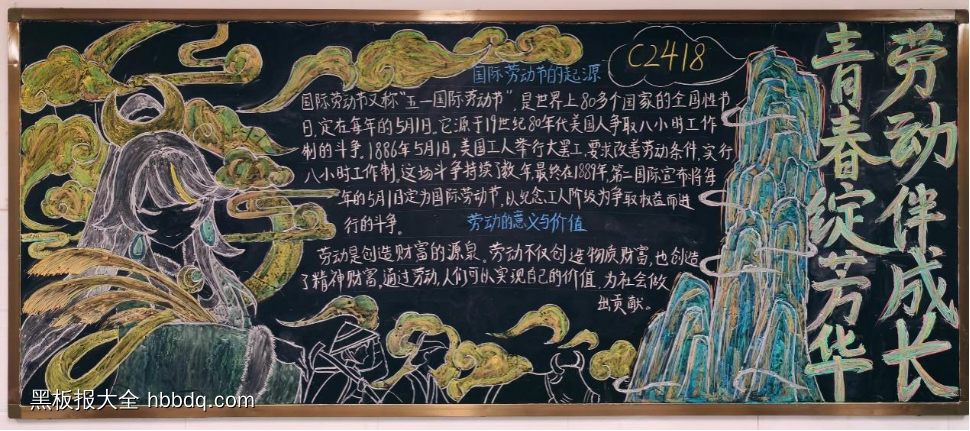 劳动伴成长
青春绽芳华
C2418
国际劳动节的起源
国际劳动节又称“五一国际劳动节”,是世界上80多个国家的全国性节
日,定在每年的5月1日。它源于19世纪80年代美国人争取八小时工作
制的斗争。1886年5月1日,美国工人举行大罢工,要求改善劳动条件,实行
八小时工作制,这场斗争持续了数年,最终在1889年,第二国际宣布将每
年的5月1日定为国际劳动节,以纪念工人阶级为争取权益而进
行的斗争。
劳动的意义与价值
劳动是创造财富的源泉。劳动不仅创造物质财富,也创造
了精神财富,通过劳动,人们可以实现自己的价值,为社会做
出贡献。
黑板报大全 hbbdq.com